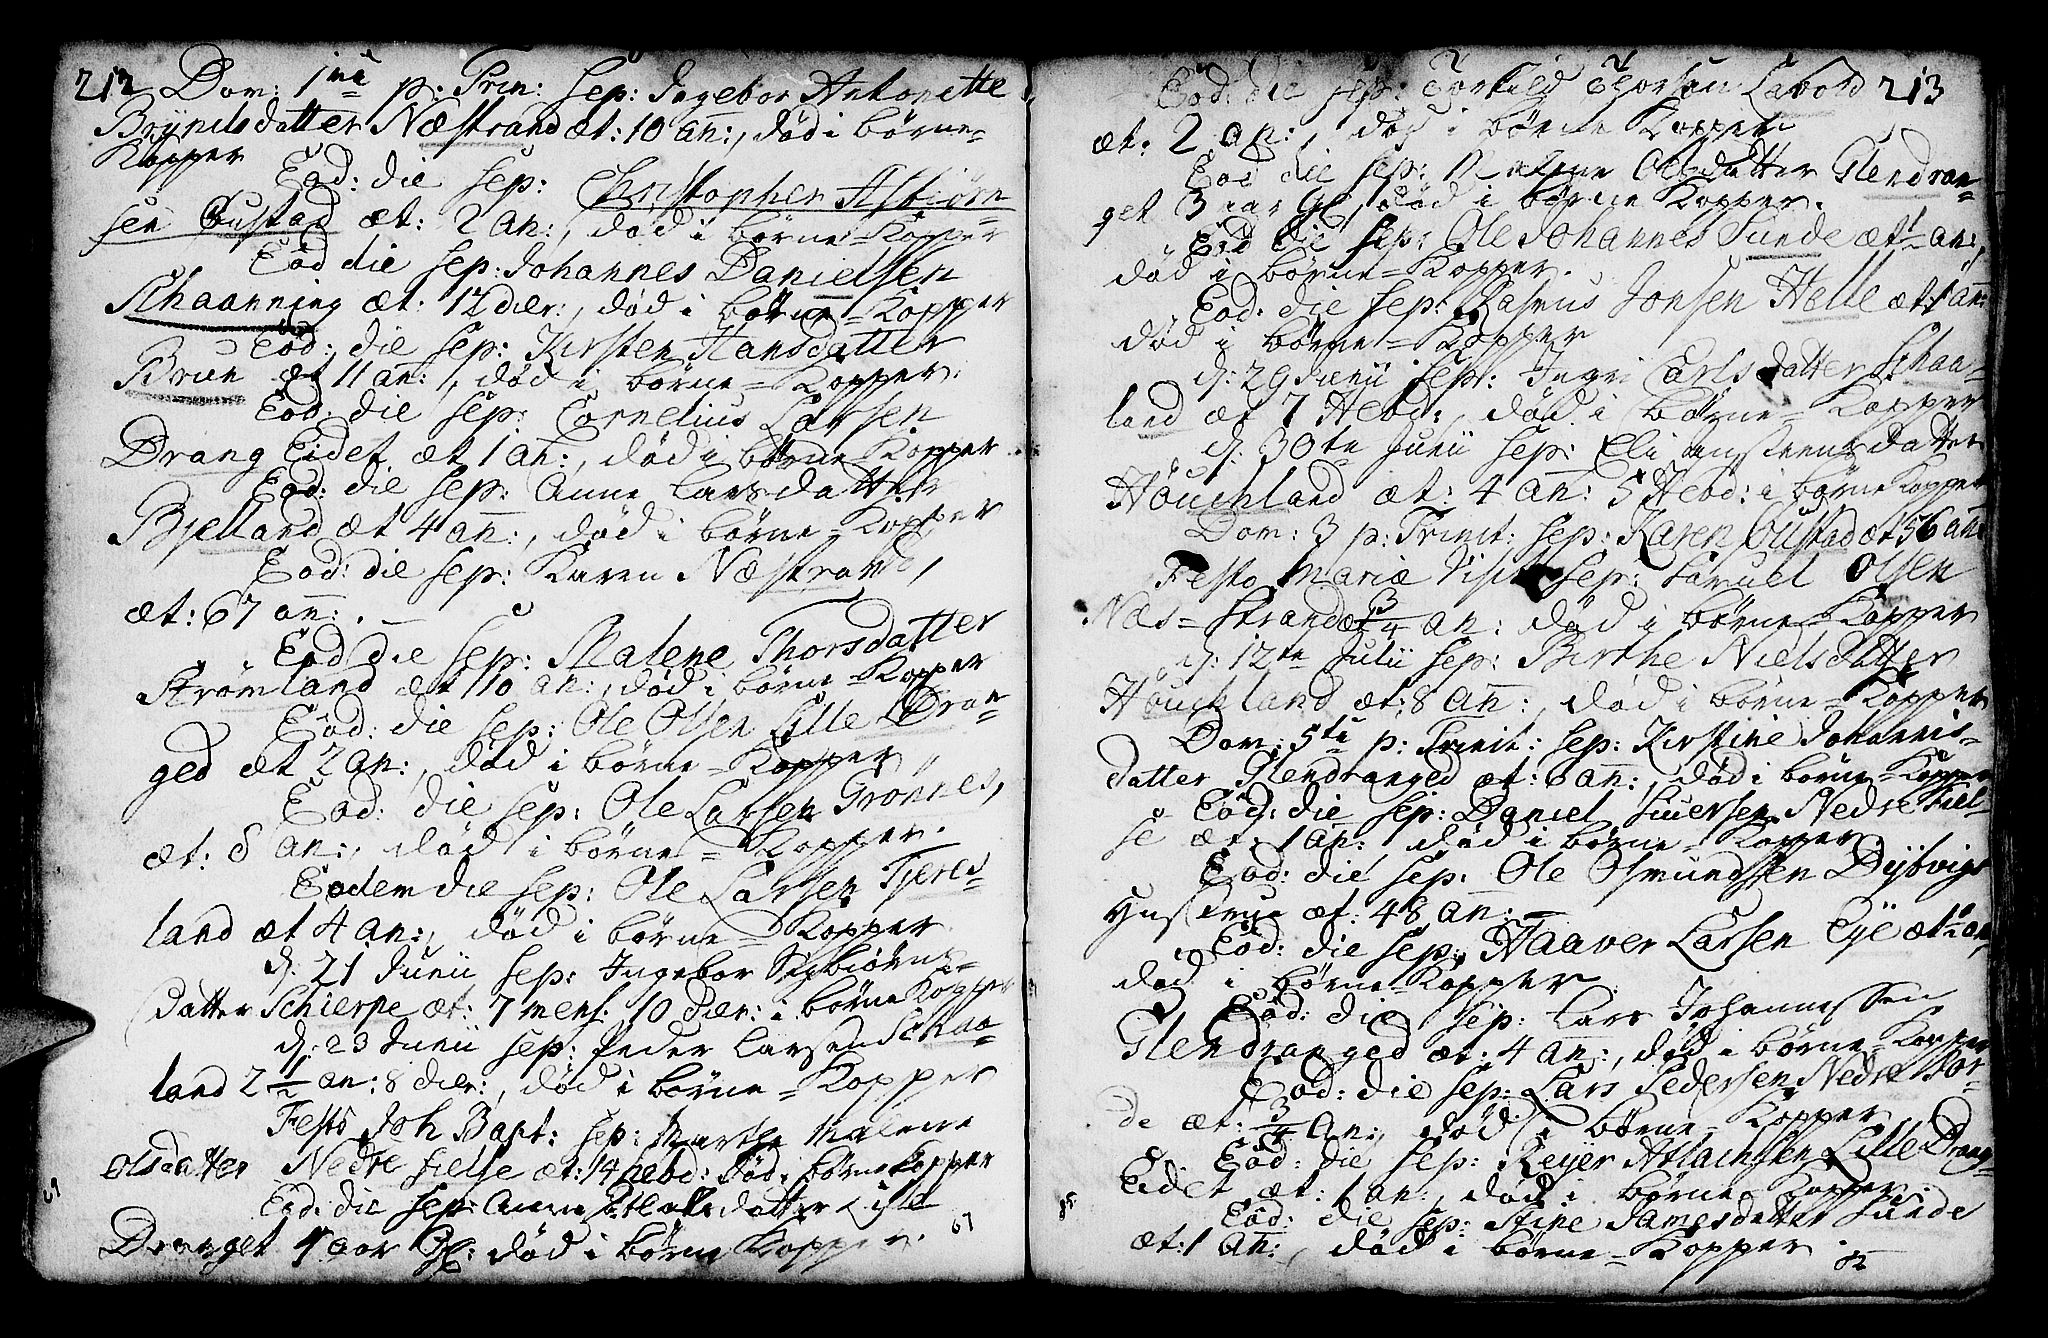 212 Dom: 1ma p: Trin: sep: Ingebor Antonette
Brynilsdatter Næstrand æt: 10 an:, død i børne=
Kopper
Eod: die sep: Christopher Asbiørn
sen Gustad æt: 2 an:, død i børne=Kopper
Eod die sep: Johannes Danielsen
Schaanning æt: 12 dier:, død i børne=Kopper
Eod: die sep: Kirsten Hansdatter
Brue æt 11 an:, død i børne=Kopper.
Eod: die sep: Cornelius Larsen
Drang Eidet æt 1 an:, død i børne Kopper
Eod: die sep: Anne Larsdatter
Bjelland æt 4 an:, død i børne=Kopper
Eod: die sep: Karen Næstrand,
æt: 67 an:.
Eod die sep: Malene Thorsdatter
Strømland æt 10 an:, død i børne=Kopper
Eod: die sep: Ole Olsen Lille Dran=
ged æt 2 an:, død i børne=Kopper
Eod: die sep: Ole Larsen Grønnes,
æt: 8 an:, død i børne=Kopper.
Eodem die sep: Ole Larsen Tjeres=
land æt 4 an:, død i børne=Kopper
d: 21 Junii sep: Ingebor Sigbiørns=
datter Schierpe æt: 7 mens: 10 dier: i børne Kopper
d: 23 Junii sep: Peder Larsen Schaa=
land 2 1/2 an: 8 dier:, død i børne=Kopper
Festo Joh Bapt: sep: Marthe Malene
Olsdatter Nedre Sielse æt: 14 hebd: død i børne Kopper
Eod: die sep: Anne datter Lisle
Dranget 4 aar Gl: død i børne Kopper.
Eod: die sep: Torkild Thorsen Lavold 213
æt: 2 an:, død i børne Kopper
Eod die sep: Malene Olsdatter Glendran=
get 3 aar Gl, død i børne Kopper.
Eod die sep: Ole Johannes Sunde æt 1 an:,
død i børne=Kopper.
Eod: die sep: Rasmus Jonsen Helle æt: 1 an:
død i børne=Kopper
d: 29 Junii sep: Ingri Carlsdatter Schaa=
land æt 7 Hebd:, død i børne=Kopper
d: 30te Junii sep: Eli datter
Høuchland æt: 4 an: 5 Hebd: i børne Kopper
Dom: 3 p: Trinit: sep: Karen Gustad æt 56 an:
Festo Mariæ Visit: sep: Samuel Olsen
Næs=Strand æt 3/4 an: død i børne=Kopper
d: 12te Julii sep: Birthe Nielsdatter
Høuchland æt: 8 an:, død i børne=Kopper
Dom: 5te p: Trinit: sep: Kirstine Johannis=
datter Glendranged æt: 8 an:, død i børne=Kopper
Eod: die sep: Daniel Siuersen Nedre Siel=
se æt: 1 an: død i børne=Kopper.
Eod: die sep: Ole Osmundssen Dybvigs
Hustrue æt: 48 an:
Eod: die sep: Haaver Larsen Eye æt: an
død i børne=Kopper.
Eod: die sep: Lars Johannessen
Glendranged æt: 4 an:, død i børne=Kopper
Eod: die sep: Lars Pedersen Nedre Bor=
de æt: 3/4 an:, død i børne=Kopper
Eod: die sep: Reyer Atlachsen Lille Drang=
Eidet æt: 1 an:, død i børne Kopper
Eod: die sep: Stine Jamesdatter Sunde
æt: 1 an:, død i børne=Kopper.